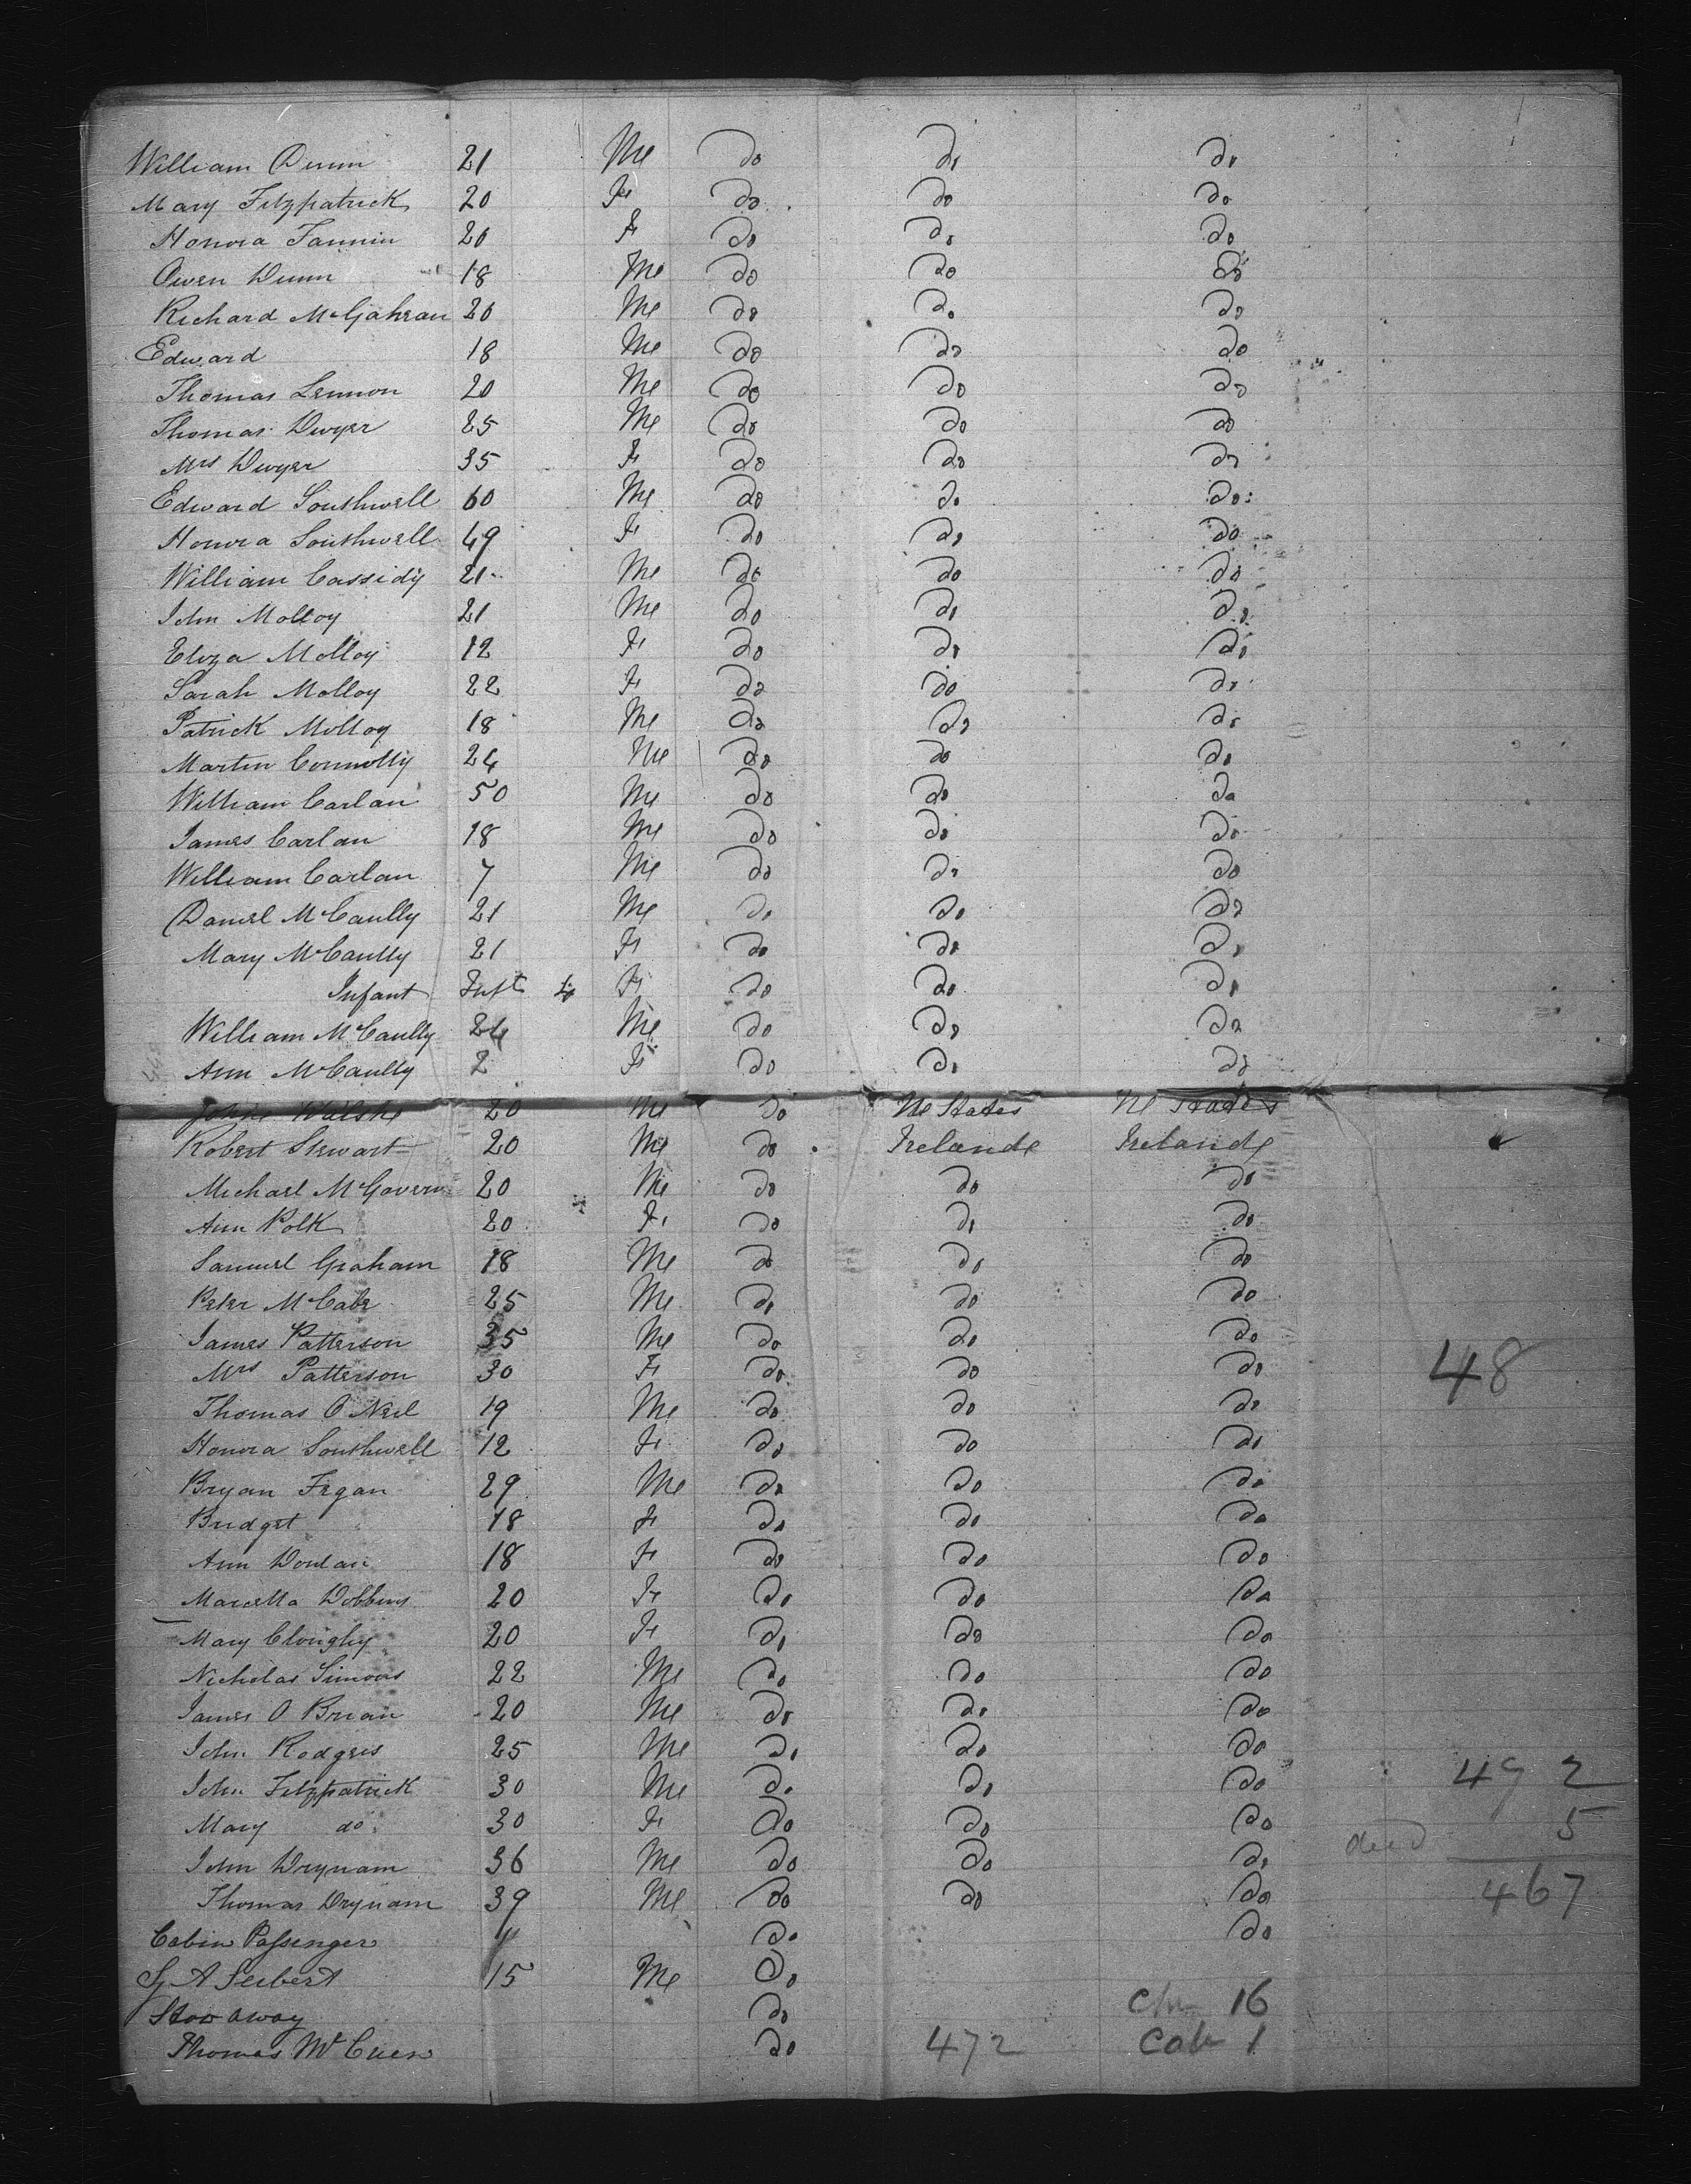 William Dunn 21 Me Do Do Do
Mary Fitzpatrick 20 Fe Do Do Do
Honora Fannin 20 Fe Do Do Do
Owen Dunn 18 Me Do Do Do
Richard McGahran 20 Me Do Do Do
Edward 18 Me Do Do Do
Thomas Lennon 20 Me Do Do Do
Thomas Dwyer 25 Me Do Do Do
Mrs Dwyer 35 Fe Do Do Do
Edward Southwell 60 Me Do Do Do
Honora Southwell 49 Fe Do Do Do
William Cassidy 21 Me Do Do Do
John Molloy 21 Me Do Do Do
Eliza Molloy 12 Fe Do Do Do
Sarah Molloy 22 Fe Do Do Do
Patrick Molloy 18 Me Do Do Do
Martin Connolly 24 Me Do Do Do
William Carlan 50 Me Do Do Do
James Carlan 18 Me Do Do Do
William Carlan 7 Me Do Do Do
Daniel McCaully 21 Me Do Do Do
Mary McCaully 21 Fe Do Do Do
Infant Inft 4 Fe Do Do Do
William McCaully 24 Me Do Do Do
Ann McCaully 2 Fe Do Do Do
Walshe 20 Me Do Ue States Ue States
Robert Stewart 20 Me Do Irelande Irelande
Michael McGovern 20 Me Do Do Do
Ann Polk 20 Fe Do Do Do
Samuel Graham 18 Me Do Do Do
Peter McCabe 25 Me Do Do Do
James Patterson 35 Me Do Do Do
Mrs Patterson 30 Fe Do Do Do 48
Thomas O Neil 19 Me Do Do Do
Honora Southwell 12 Fe Do Do Do
Bryan Fegan 29 Me Do Do Do
Bridget 18 Fe Do Do Do
Ann Donlan 18 Fe Do Do Do
Marcella Dobbins 20 Fe Do Do Do
Mary Cloughy 20 Fe Do Do Do
Nicholas Simons 22 Me Do Do Do
James O Brian 20 Me Do Do Do
John Rodgers 25 Me Do Do Do
John Fitzpatrick 30 Me Do Do Do 492
Mary do 30 Fe Do Do Do 5
John Drynam 36 Me Do Do Do dead
Thomas Drynam 39 Me Do Do Do 467
Cabin Passenger Do Do
A Seibert 15 Me Do
Stow away Do Chn 16
Thomas McCuen Do 472 Cab 1